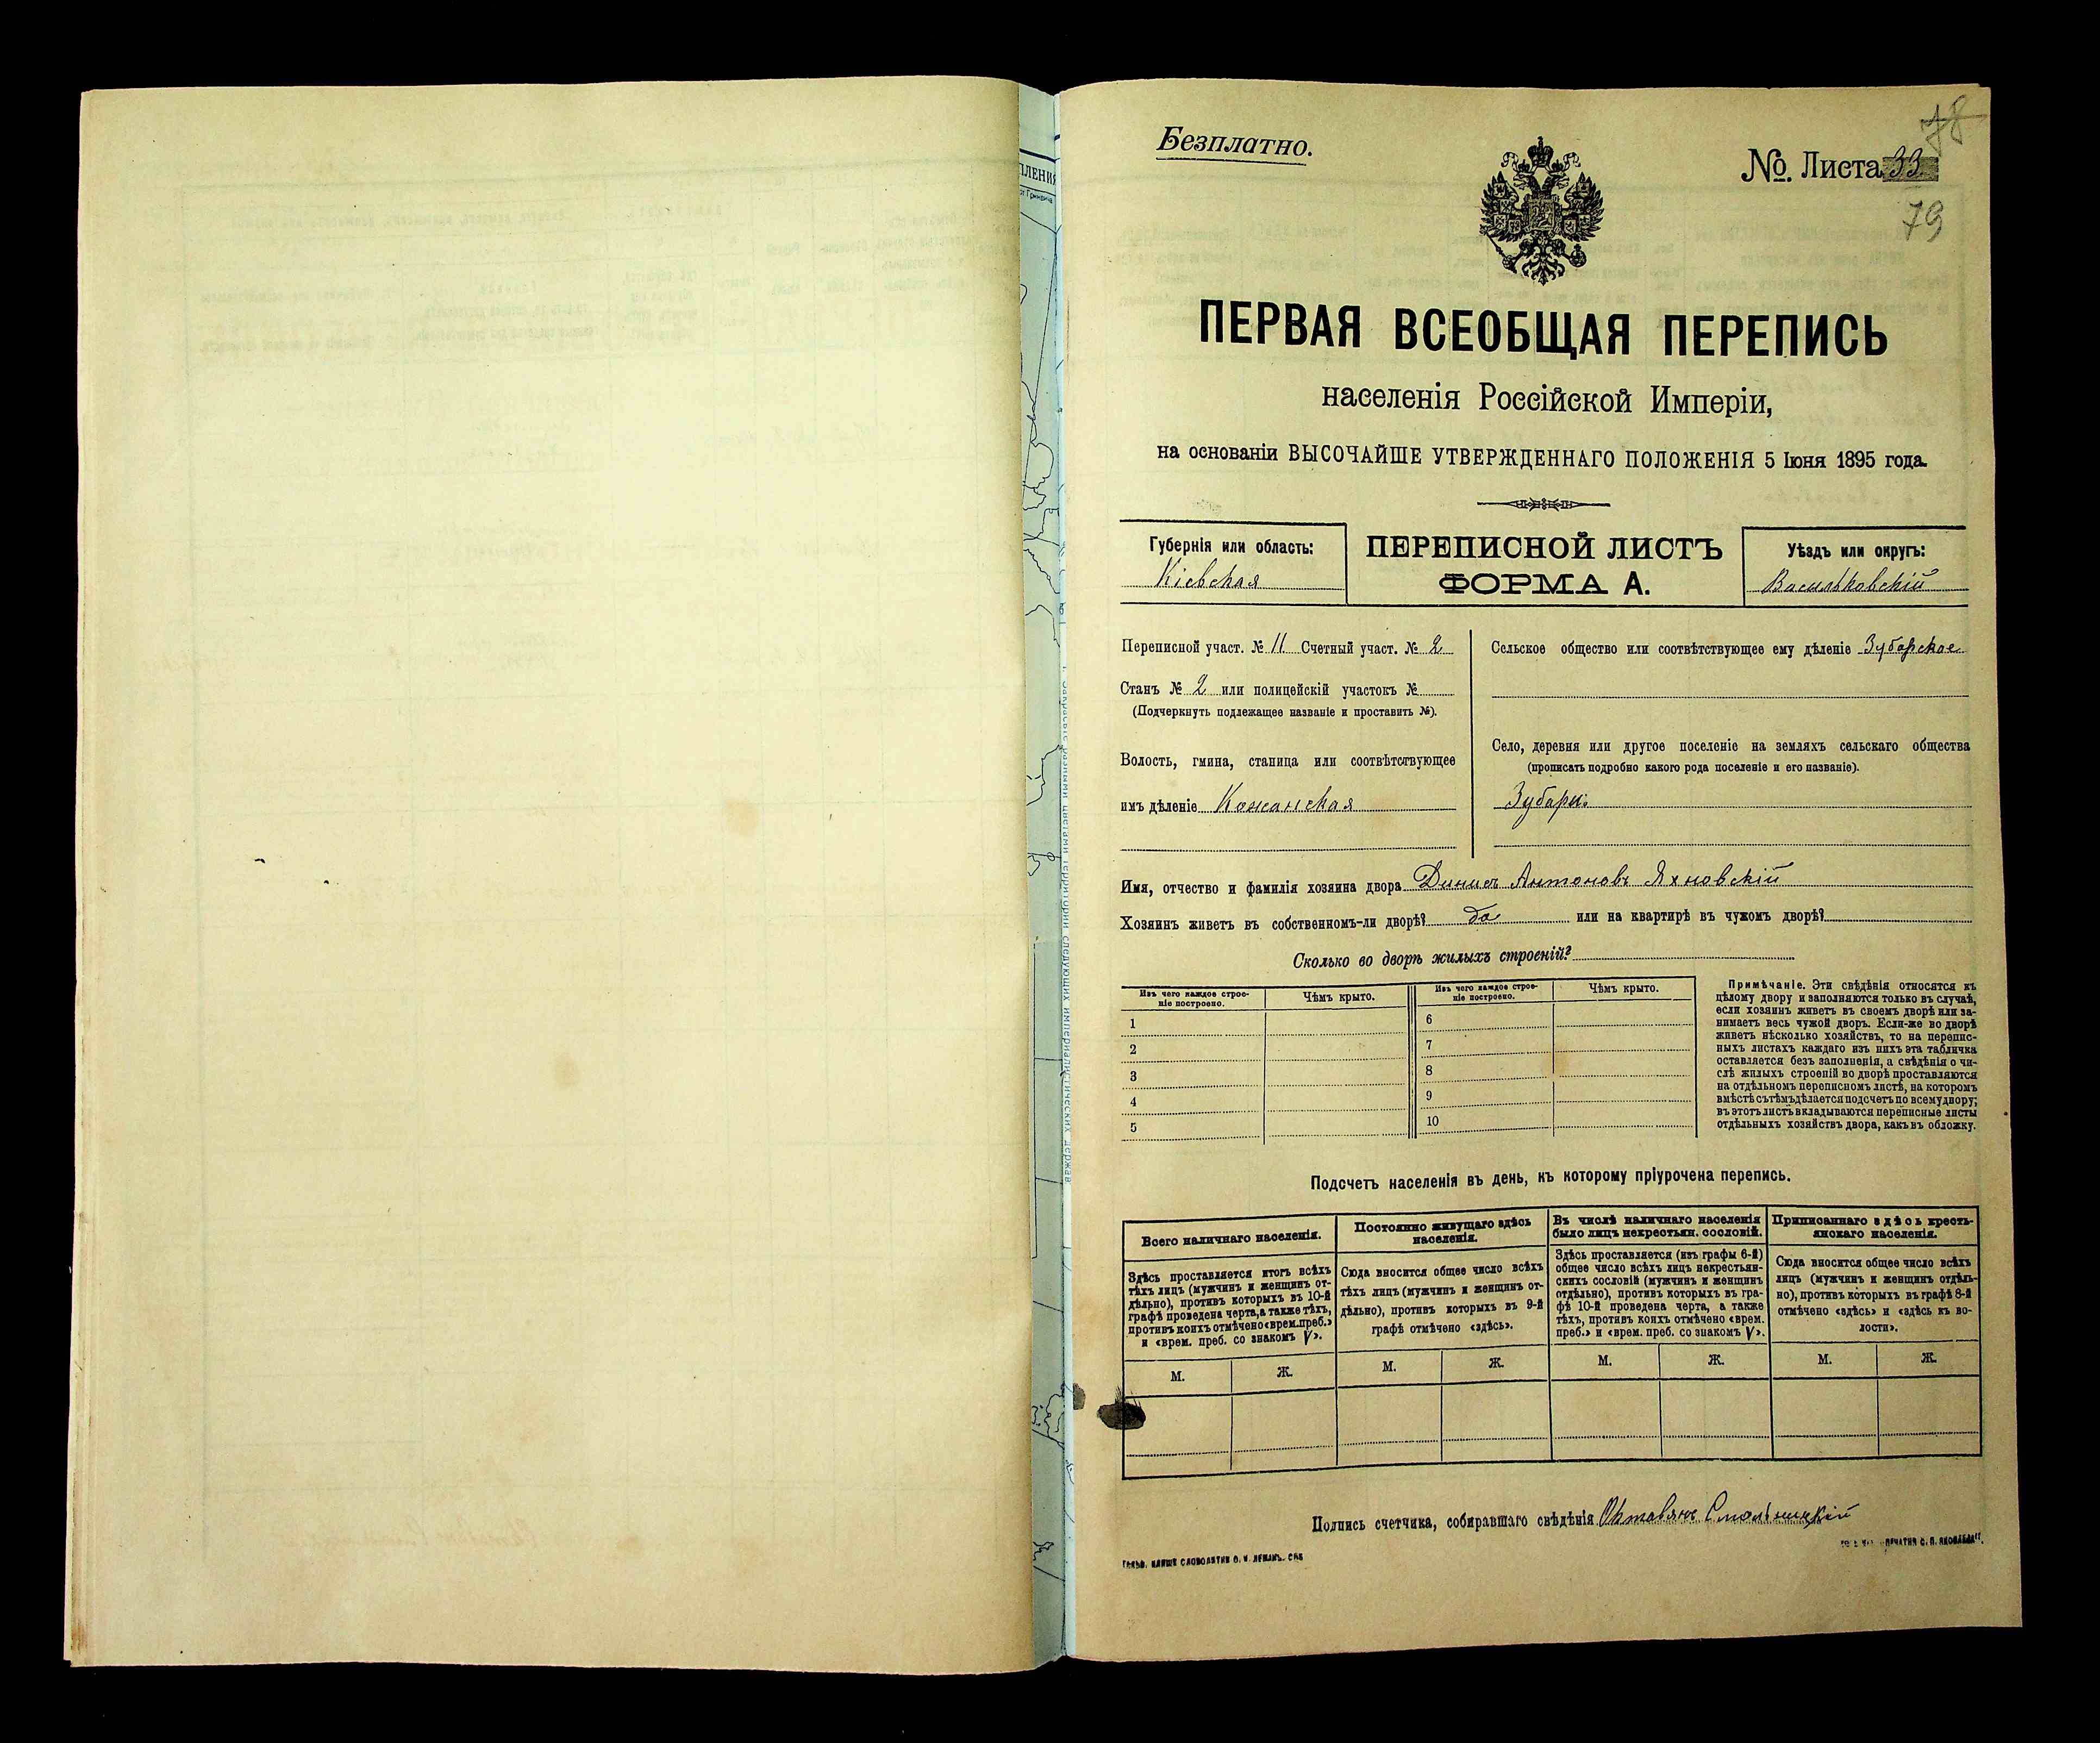 Безплатно.
78
№. Листа 33
79
ПЕРВАЯ ВСЕОБЩАЯ ПЕРЕПИСЬ
населенія Россійской Имперіи,
на основаніи ВЫСОЧАЙШЕ УТВЕРЖДЕННАГО ПОЛОЖЕНІЯ 5 Іюня 1895 года.
Губернія или область:
Кіевская
ПЕРЕПИСНОЙ ЛИСТЪ
ФОРМА А.
Уѣздъ или округъ:
Васильковскій
Переписной участ. № 11 Счетный участ. № 2
Станъ № 2 или полицейскій участокъ №
(Подчеркнуть подлежащее названіе и проставить №).
Волость, гмина, станица или соотвѣтствующее
имъ дѣленіе Кожанская
Сельское общество или соотвѣтствующее ему дѣленіе Зубарское
Село, деревня или другое поселеніе на земляхъ сельскаго общества
(прописать подробно какого рода поселеніе и его названіе).
Зубари
Имя, отчество и фамилія хозяина двора Динисъ Антоновъ Яхновскій
Хозяинъ живетъ въ собственномъ-ли дворѣ? да или на квартирѣ въ чужомъ дворѣ?
Сколько во дворѣ жилыхъ строеній?
Изъ чего каждое строе-
ніе построено.
Чѣмъ крыто.
Изъ чего каждое строе-
ніе построено.
Чѣмъ крыто.
1
2
3
4
5
6
7
8
9
10
Примѣчаніе. Эти свѣдѣнія относятся къ
цѣлому двору и заполняются только въ случаѣ,
если хозяинъ живетъ въ своемъ дворѣ или за-
нимаетъ весь чужой дворъ. Если-же во дворѣ
живетъ нѣсколько хозяйствъ, то на перепис-
ныхъ листахъ каждаго изъ нихъ эта табличка
оставляется безъ заполненія, а свѣдѣнія о чи-
слѣ жилыхъ строеній во дворѣ проставляются
на отдѣльномъ переписномъ листѣ, на которомъ
вмѣстѣ съ тѣмъ дѣлается подсчетъ по всему двору;
въ этотъ листъ вкладываются переписные листы
отдѣльныхъ хозяйствъ двора, какъ въ обложку.
Подсчетъ населенія въ день, къ которому пріурочена перепись.
Всего наличнаго населенія.
Здѣсь проставляется итогъ всѣхъ
тѣхъ лицъ (мужчинъ и женщинъ от-
дѣльно), противъ которыхъ въ 10-й
графѣ проведена черта, а также тѣхъ,
противъ коихъ отмѣчено «врем. преб.»
и «врем. преб. со знакомъ V».
М. Ж.
Постоянно живущаго здѣсь
населенія.
Сюда вносится общее число всѣхъ
тѣхъ лицъ (мужчинъ и женщинъ от-
дѣльно), противъ которыхъ въ 9-й
графѣ отмѣчено «здѣсь».
М. Ж.
Въ числѣ наличнаго населенія
было лицъ некрестьян. сословій.
Здѣсь проставляется (изъ графы 6-й)
общее число всѣхъ лицъ некрестьян-
скихъ сословій (мужчинъ и женщинъ
отдѣльно), противъ которыхъ въ гра-
фѣ 10-й проведена черта, а также
тѣхъ, противъ коихъ отмѣчено «врем.
преб.» и «врем. преб. со знакомъ V».
М. Ж.
Приписаннаго здѣсь кресть-
янскаго населенія.
Сюда вносится общее число всѣхъ
лицъ (мужчинъ и женщинъ отдѣль-
но), противъ которыхъ въ графѣ 8-й
отмѣчено «здѣсь» и «здѣсь въ во-
лости».
М. Ж.
Подпись счетчика, собиравшаго свѣдѣнія Октавянъ Смольницкій